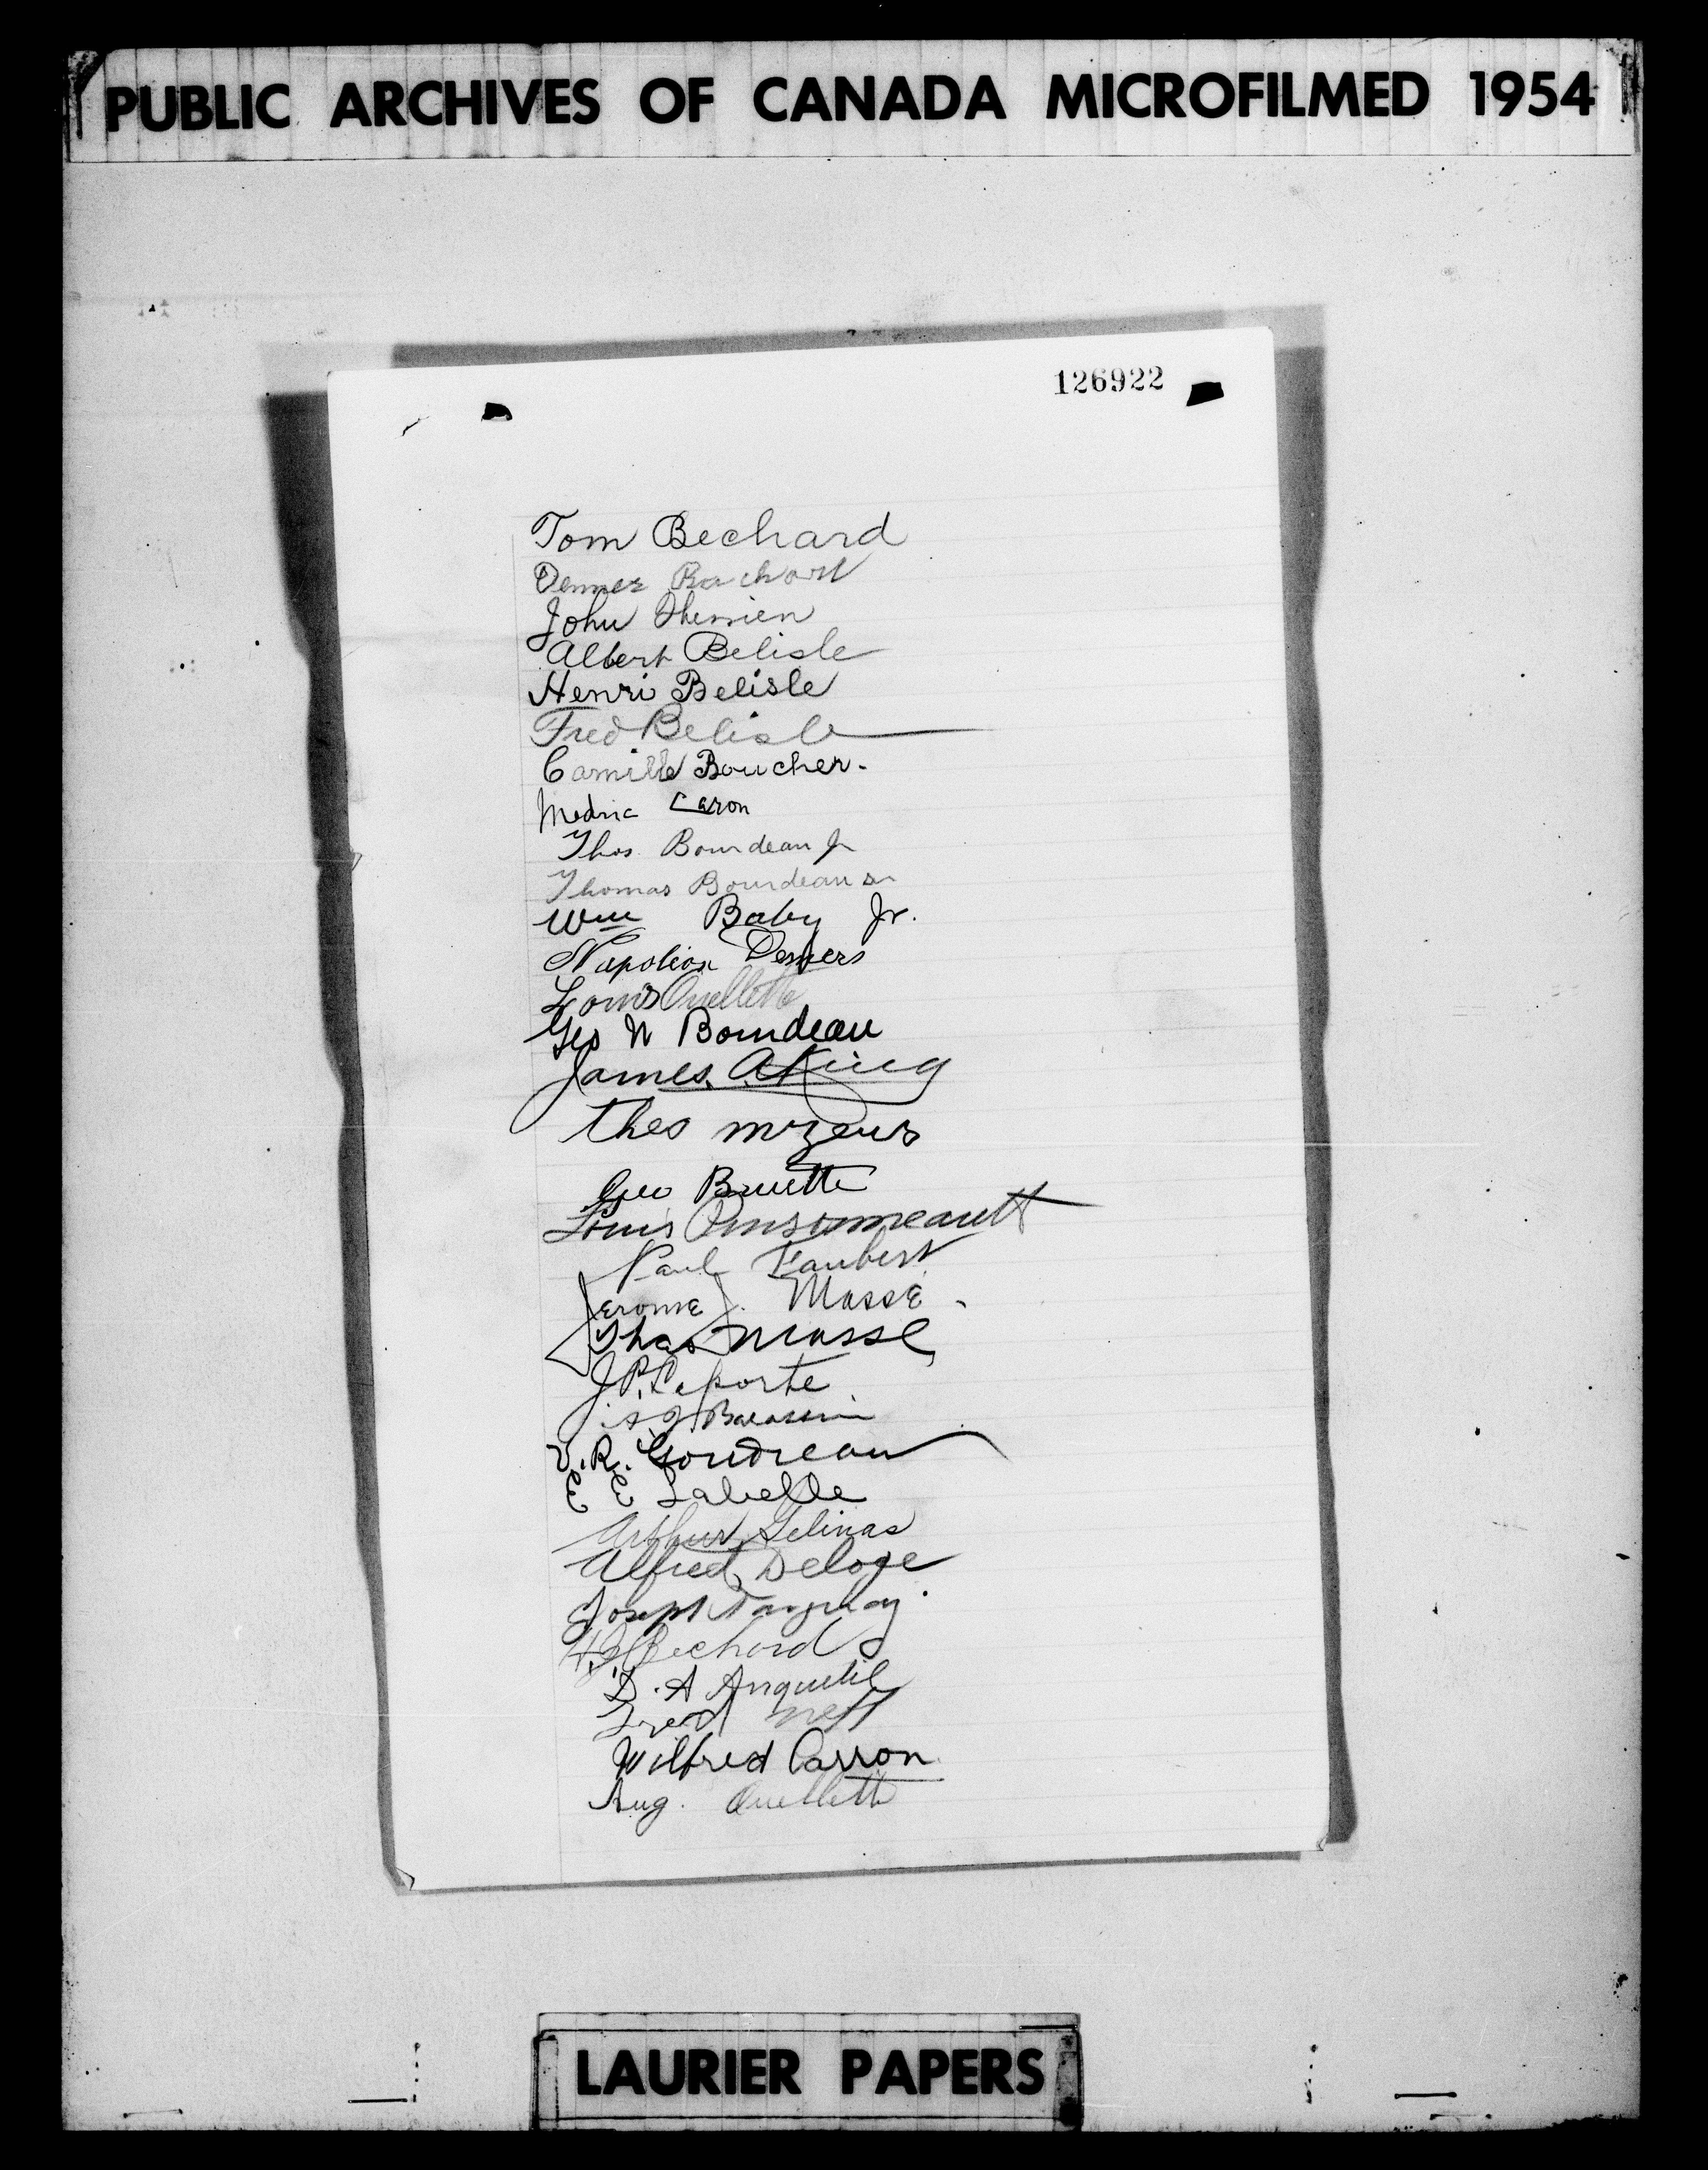 PUBLIC ARCHIVES OF CANADA MICROFILMED 1954
126922
Tom Bechard
John Therrien
Albert Belisle
Henri Belisle
Fred Belisle
Camille Boucher.
Medric Caron
Thos. Bourdeau Jr
Thomas Bourdeau Sr
Wm Baby Jr.
Napoleon Demers
Louis Ouellette
Geo N Bourdeau
James A King
Geo Bruette
Louis Pinsonneault
Paul Faubert
Jerome J. Masse
Thos Masse
J P. Laporte
V. R. Goudreau
E E Labelle
Arthur Gelinas
Alfred Deloge
Joseph Tanguay
Bechard
D. A Anquetil
Fred Neff
Wilfred Carron
Aug. Ouellette
LAURIER PAPERS